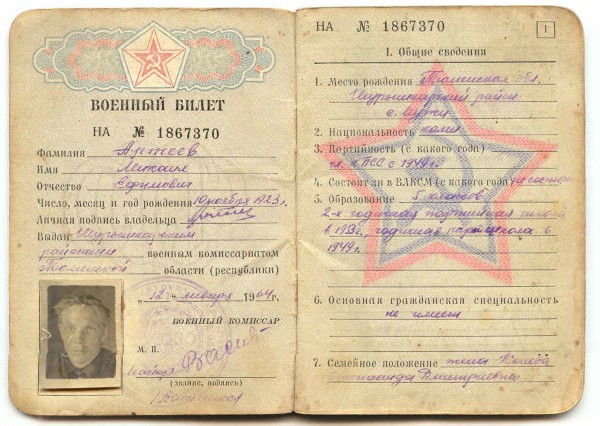 ВОЕННЫЙ БИЛЕТ
НА № 1867370
Фамилия Артеев
Имя Михаил
Отчество Ефимович
Число, месяц и год рождения 10 ноября 1923 г.
Личная подпись владельца
Выдан Шурышкарским
районным военным комиссариатом
Тюменской области (республики)
„12“ января 1964 г.
ВОЕННЫЙ КОМИССАР
М. П.
майор
(звание, подпись)
НА № 1867370
1
I. Общие сведения
1. Место рождения Тюменская обл.
Шурышкарский район
с. Мужи
2. Национальность коми
3. Партийность (с какого года)
чл. КПСС с 1949 г.
4. Состоит ли в ВЛКСМ (с какого года) не состоит
5. Образование 5 классов
2-х годичная партийная школа
в 1953г. годичная парт школа в
1949 г.
6. Основная гражданская специальность
не имеет
7. Семейное положение жена
Дмитриевна